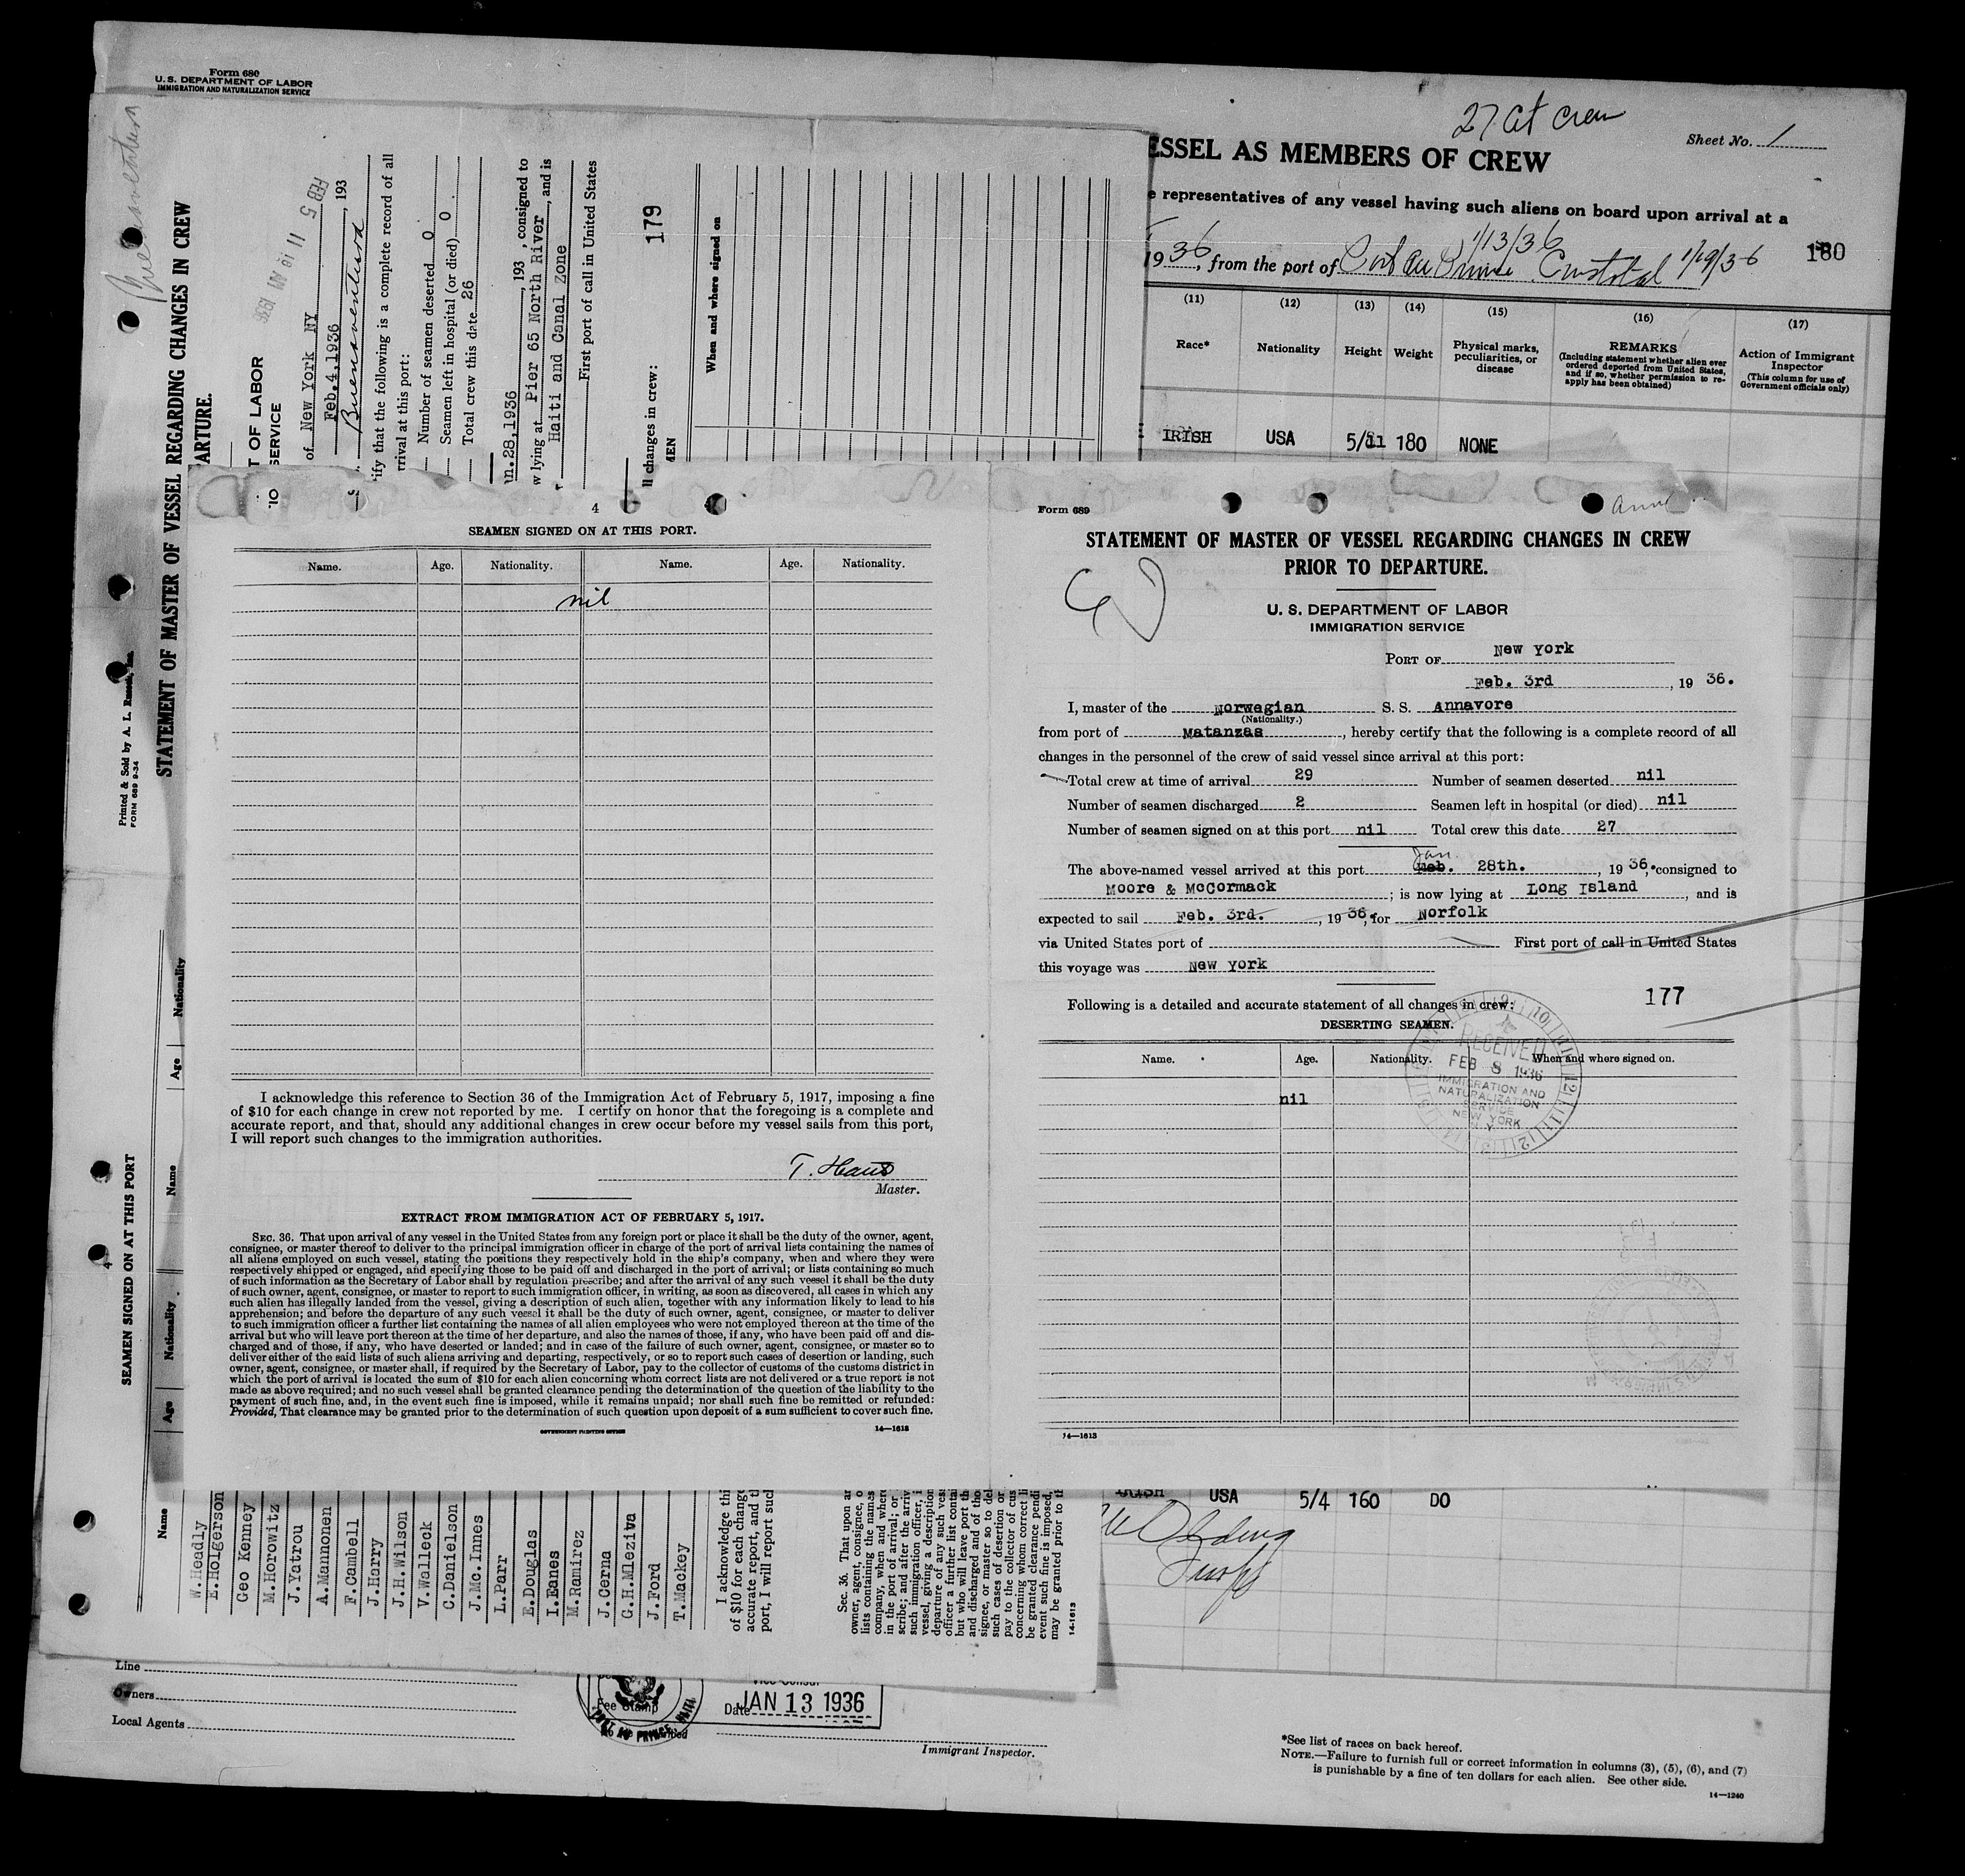 Form 680
U. S. DEPARTMENT OF LABOR
IMMIGRATION AND NATURALIZATION SERVICE
27 at crew
Sheet No. 1
ESSEL AS MEMBERS OF CREW
e representatives of any vessel having such aliens on board upon arrival at a
1/13/36
1936, from the port of Port au Prince Cristobal 1/19/36
180
(11) (12) (13) (14) (15) (16) (17)
Race* Nationality Height Weight Physical marks, peculiarities, or disease REMARKS (Including statement whether alien ever ordered deported from United States, and if so, whether permission to reapply has been obtained) Action of Immigrant Inspector (This column for use of Government officials only)
IRISH USA 5/11 180 NONE
Buenaventura
STATEMENT OF MASTER OF VESSEL REGARDING CHANGES IN CREW
PARTURE.
FEB 5 11 18 AM 1936
T OF LABOR
SERVICE
of New York NY
Feb.4,1936, 193
Buenaventura
ify that the following is a complete record of all
rrival at this port:
Number of seamen deserted 0
Seamen left in hospital (or died) 0
Total crew this date 26
n.28,1936, 193 , consigned to
w lying at Pier 65 North River, and is
Haiti and Canal Zone
First port of call in United States
179
ll changes in crew:
MEN
When and where signed on
Printed & Sold by A. L.
FORM 689 9-34
4
SEAMEN SIGNED ON AT THIS PORT
Name Age Nationality Name Age Nationality
W.Headly
E.Holgerson
Geo Kenney
M.Horowitz
J.Yatrou
A.Mannonen
F.Cambell
J.Harry
J.H.Wilson
V.Wallek
C.Danielson
J.Mc.Innes
L.Parr
E.Douglas
I.Eanes
M.Ramirez
J.Cerna
G.H.Mleziva
J.Ford
T.Mackey
I acknowledge thi
of $10 for each change
accurate report, and t
port, I will report suc
Sec. 36. That upon ar
owner, agent, consignee, o
lists containing the names
company, when and where
in the port of arrival; or
scribe; and after the arriv
such immigration officer, i
vessel, giving a description
departure of any such vess
officer a further list contai
but who will leave port th
and discharged and of tho
signee, or master so to del
such cases of desertion or
pay to the collector of cus
concerning whom correct li
be granted clearance pendi
event such fine is imposed,
may be granted prior to th
14-1613
4
SEAMEN SIGNED ON AT THIS PORT.
Name. Age. Nationality. Name. Age. Nationality.
nil
I acknowledge this reference to Section 36 of the Immigration Act of February 5, 1917, imposing a fine
of $10 for each change in crew not reported by me. I certify on honor that the foregoing is a complete and
accurate report, and that, should any additional changes in crew occur before my vessel sails from this port,
I will report such changes to the immigration authorities.
T. Haus
Master.
EXTRACT FROM IMMIGRATION ACT OF FEBRUARY 5, 1917.
SEC. 36. That upon arrival of any vessel in the United States from any foreign port or place it shall be the duty of the owner, agent,
consignee, or master thereof to deliver to the principal immigration officer in charge of the port of arrival lists containing the names of
all aliens employed on such vessel, stating the positions they respectively hold in the ship's company, when and where they were
respectively shipped or engaged, and specifying those to be paid off and discharged in the port of arrival; or lists containing so much
of such information as the Secretary of Labor shall by regulation prescribe; and after the arrival of any such vessel it shall be the duty
of such owner, agent, consignee, or master to report to such immigration officer, in writing, as soon as discovered, all cases in which any
such alien has illegally landed from the vessel, giving a description of such alien, together with any information likely to lead to his
apprehension; and before the departure of any such vessel it shall be the duty of such owner, agent, consignee, or master to deliver
to such immigration officer a further list containing the names of all alien employees who were not employed thereon at the time of the
arrival but who will leave port thereon at the time of her departure, and also the names of those, if any, who have been paid off and dis-
charged and of those, if any, who have deserted or landed; and in case of the failure of such owner, agent, consignee, or master so to
deliver either of the said lists of such aliens arriving and departing, respectively, or so to report such cases of desertion or landing, such
owner, agent, consignee, or master shall, if required by the Secretary of Labor, pay to the collector of customs of the customs district in
which the port of arrival is located the sum of $10 for each alien concerning whom correct lists are not delivered or a true report is not
made as above required; and no such vessel shall be granted clearance pending the determination of the question of the liability to the
payment of such fine, and, in the event such fine is imposed, while it remains unpaid; nor shall such fine be remitted or refunded:
Provided, That clearance may be granted prior to the determination of such question upon deposit of a sum sufficient to cover such fine.
GOVERNMENT PRINTING OFFICE 14—1613
Form 689
STATEMENT OF MASTER OF VESSEL REGARDING CHANGES IN CREW
PRIOR TO DEPARTURE.
U. S. DEPARTMENT OF LABOR
IMMIGRATION SERVICE
PORT OF New York
Feb. 3rd, 19 36.
I, master of the Norwegian S. S. Annavore
(Nationality.)
from port of Matanzas, hereby certify that the following is a complete record of all
changes in the personnel of the crew of said vessel since arrival at this port:
Total crew at time of arrival 29 Number of seamen deserted nil
Number of seamen discharged 2 Seamen left in hospital (or died) nil
Number of seamen signed on at this port nil Total crew this date 27
Jan.
The above-named vessel arrived at this port Feb. 28th., 19 36, consigned to
Moore & McCormack; is now lying at Long Island, and is
expected to sail Feb. 3rd., 19 36, for Norfolk
via United States port of First port of call in United States
this voyage was New York
177
Following is a detailed and accurate statement of all changes in crew:
DESERTING SEAMEN.
Name. Age. Nationality. When and where signed on.
nil
RECEIVED
FEB 8 1936
IMMIGRATION AND
NATURALIZATION
SERVICE
NEW YORK
N.Y.
14—1613
IRISH USA 5/4 160 DO
Line
Owners
Local Agents
Fee Stamp
PORT AU PRINCE, HAITI
Vice Consul
Date JAN 13 1936
Immigrant Inspector.
*See list of races on back hereof.
NOTE.—Failure to furnish full or correct information in columns (3), (5), (6), and (7)
is punishable by a fine of ten dollars for each alien. See other side.
14—1240